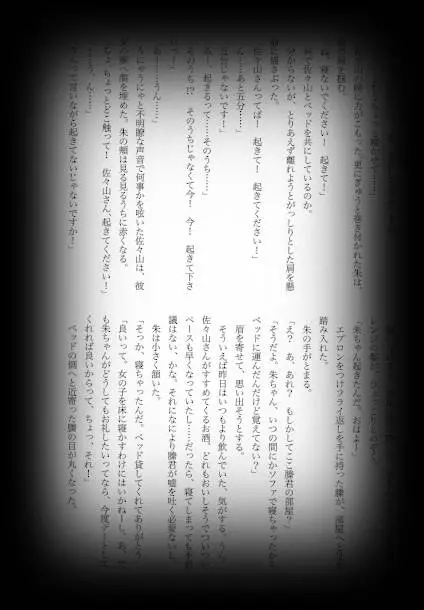 ね、寝ないでください！　起きて！」
で佐々山とベッドを共にしているのか。
からないが、とりあえず離れようとがっしりとした肩を懸
に揺さぶった。
佐々山さんってば！　起きて！　起きてください！」
ん……あと五分……」
じゃないです！」
起きるって……そのうち……」
そのうち!?　そのうちじゃなくて今！　今！　起きて下さ
ー……うん……」
にゃうにゃと不明瞭な声音で何事かを呟いた佐々山は、彼
へ顔を埋めた。朱の頬は見る見るうちに赤くなる。
ちょっとどこ触って！　佐々山さん、起きてください！」
う、ん……」
って言いながら起きてないじゃないですか！」
「朱ちゃん起きたんだ、おはよー」
エプロンをつけフライ返しを手に持った縢が、部屋へと足を
踏み入れた。
朱の手がとまる。
「え？　あ、あれ？　もしかしてここ縢君の部屋？」
「そうだよ。朱ちゃん、いつの間にかソファで寝ちゃったから
ベッドに運んだんだけど覚えてない？」
眉を寄せて、思い出そうとする。
そういえば昨日はいつもより飲んでいた、気がする。うん。
佐々山さんがすすめてくるお酒、どれもおいしそうでついつい
ペースも早くなっていたし……だったら、寝てしまっても不思
議はない、かな。それになにより縢君が嘘を吐く必要ないし。
朱は小さく頷いた。
「そっか、寝ちゃったんだ。ベッド貸してくれてありがとう」
「良いって。女の子を床に寝かすわけにはいかねーし。あ、で
も朱ちゃんがどうしてもお礼したいってなら、今度デートして
くれれば良いからって、ちょっ、それ！」
ベッドの側へと近寄った縢の目が丸くなった。